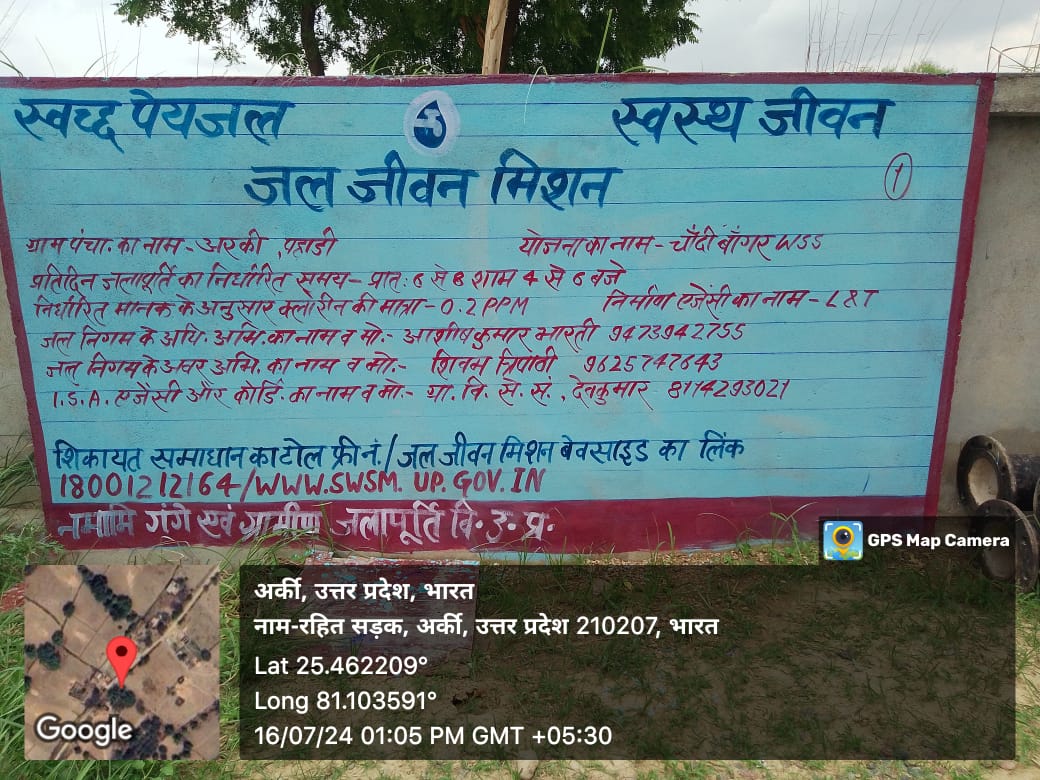 स्वच्छ पेयजल स्वस्थ जीवन
जल जीवन मिशन
1
ग्राम पंचा. का नाम - अरकी, पहाडी योजना का नाम - चाँदी बाँगर WSS
प्रतिदिन जलापूर्ति का निर्धारित समय - प्रात: 6 से 8 शाम 4 से 6 बजे
निर्धारित मानक के अनुसार क्लोरीन की मात्रा - 0.2 PPM निर्माण एजेंसी का नाम - L&T
जल निगम के अधि. अभि. का नाम व मो:- आशीष कुमार भारती 9473942755
जल निगम के अवर अभि. का नाम व मो:- शिवम त्रिपाठी 9625747643
I.S.A. एजेंसी और कोर्डि. का नाम व मो:- ग्रा. वि. से. सं., देवकुमार - 8174293021
शिकायत समाधान का टोल फ्री नं/जल जीवन मिशन बेवसाइड का लिंक
18001212164/WWW.SWSM.UP.GOV.IN
नमामि गंगे एवं ग्रामीण जलापूर्ति वि. उ. प्र.
GPS Map Camera
अर्की, उत्तर प्रदेश, भारत
नाम-रहित सड़क, अर्की, उत्तर प्रदेश 210207, भारत
Lat 25.462209°
Long 81.103591°
16/07/24 01:05 PM GMT +05:30
Google